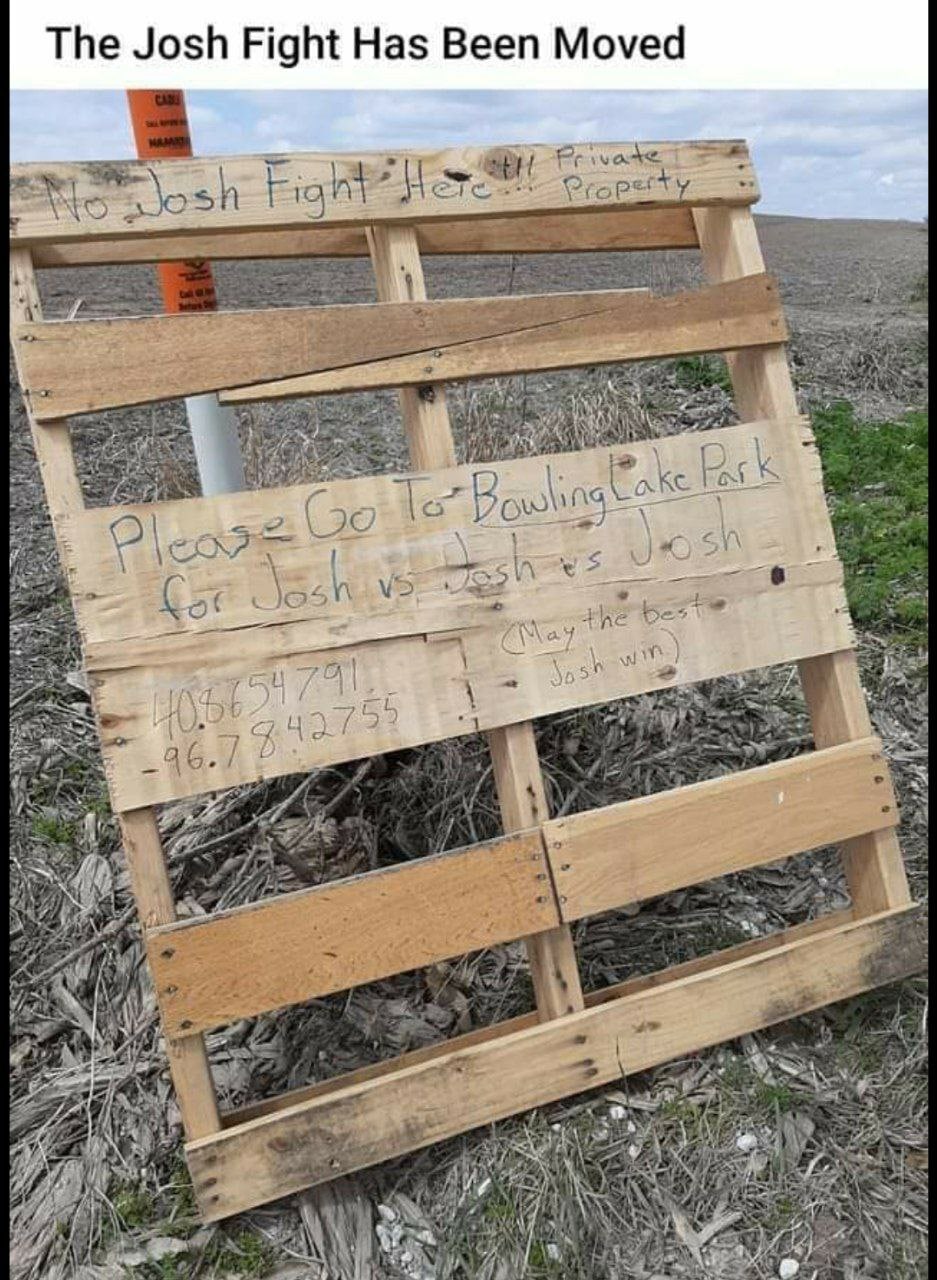 The Josh Fight Has Been Moved
CABLE
No Josh Fight Here!!! Private
Property
Please Go To Bowling Lake Park
for Josh vs Josh vs Josh
(May the best
Josh win)
40.8654791
-96.7842755